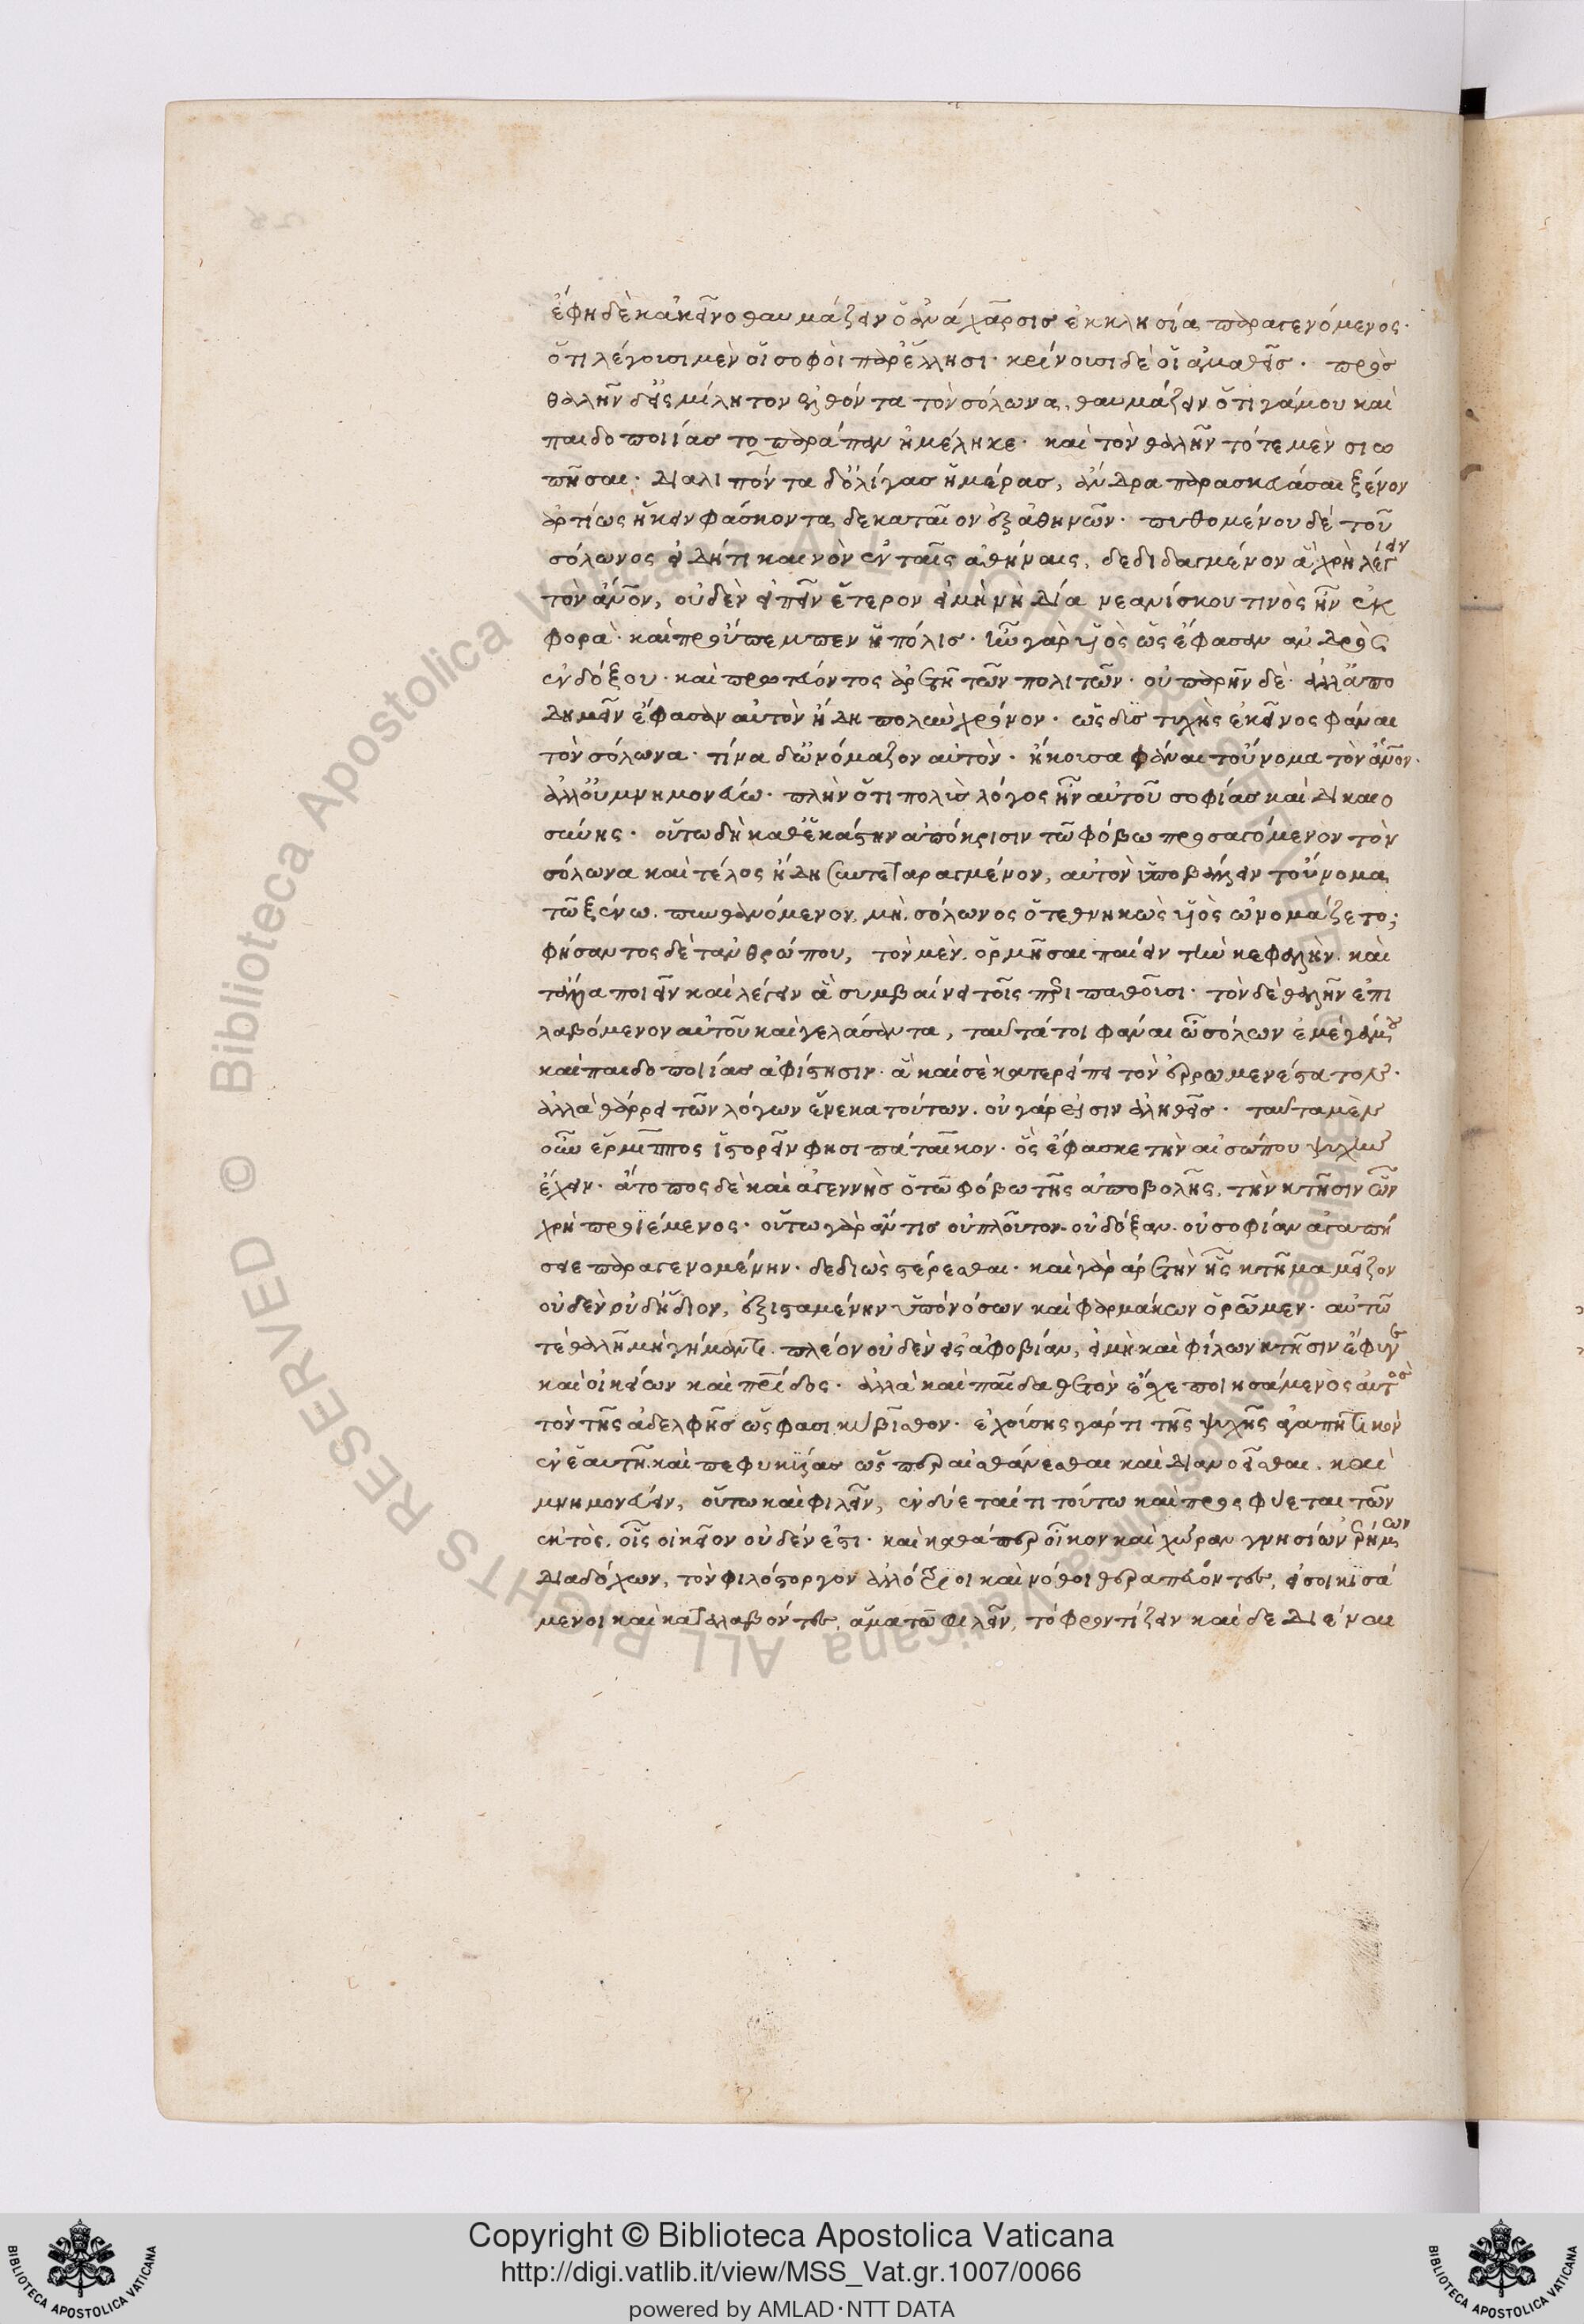 ἔφη δὲ κἀκεῖνο θαυμάζειν ὁ ἀνάχαρσις ἐκκλησία παραγενόμενος·
ὅτι λέγουσι μὲν οἱ σοφοὶ παρ' ἕλλησι· κρίνουσι δὲ οἱ ἀμαθεῖς· πρὸς
θαλῆν δ' εἰς μίλητον ἐλθόντα τὸν σόλωνα, θαυμάζειν ὅτι γάμου καὶ
παιδοποιίας τοπαράπαν ἠμέληκε· καὶ τὸν θαλῆν τότε μὲν σιω
πῆσαι· διαλιπόντα δ' ὀλίγας ἡμέρας, ἄνδρα παρασκευάσαι ξένον
ἀρτίως ἥκειν φάσκοντα δεκαταῖον ἐξ ἀθηνῶν· πυθομένου δὲ τοῦ
σόλωνος εἰ δή τι καινὸν ἐν ταῖς ἀθήναις, δεδιδαγμένον ἃ χρὴ λέγειν
τὸν ἄνον, οὐδὲν εἰπεῖν ἕτερον εἰ μὴ νὴ δία νεανίσκου τινὸς ἦν ἐκ
φορὰ· καὶ προύπεμπεν ἡ πόλις· ἦν γὰρ υἱὸς ὡς ἔφασαν ἀνδρὸς
ἐνδόξου· καὶ πρωτεύοντος ἀρετῆ τῶν πολιτῶν· οὐ παρῆν δὲ· ἀλλ' ἀπο
δημεῖν ἔφασαν αὐτὸν ἤδη πολὺν χρόνον· ὡς δυστυχὴς ἐκεῖνος φάναι
τὸν σόλωνα· τίνα δ' ὠνόμαζον αὐτὸν· ἤκουσα φάναι τοὔνομα τὸν ἄνον·
ἀλλ' οὐ μνημονεύω· πλὴν ὅτι πολὺς λόγος ἦν αὐτοῦ σοφίας καὶ δικαιο
σύνης· οὕτω δὴ καθ' ἑκάστην ἀπόκρισιν τῶ φόβω προσαγόμενον τὸν
σόλωνα καὶ τέλος ἤδη συντεταραγμένον, αὐτὸν ὑποβάλλειν τοὔνομα
τῶ ξένω. πυνθανόμενον, μὴ. σόλωνος ὁ τεθνηκὼς υἱὸς ὠνομάζετο;
φήσαντος δὲ τἀνθρώπου, τὸν μὲν. ὁρμῆσαι παίειν τὴν κεφαλὴν. καὶ
τἄλλα ποιεῖν καὶ λέγειν ἃ συμβαίνει τοῖς περιπαθοῦσι· τὸν δὲ θαλῆν ἐπι
λαβόμενον αὐτοῦ καὶ γελάσαντα, ταῦτά τοι φάναι ὦ σόλων ἐμὲ γάμου
καὶ παιδοποιίας ἀφίστησιν· ἃ καὶ σὲ κατερείπει τὸν ἐρρωμενέστατον·
ἀλλὰ θάρρει τῶν λόγων ἕνεκα τούτων. οὐ γάρ εἰσιν ἀληθεῖς· ταῦτα μὲν
οὖν ἕρμιππος ἱστορεῖν φησι πάταικον· ὃς ἔφασκε τὴν αἰσώπου ψυχὴν
ἔχειν· ἄτοπος δὲ καὶ ἀγεννὴς ὁ τῶ φόβω τῆς ἀποβολῆς, τὴν κτῆσιν ὧν
χρὴ προϊέμενος· οὕτω γὰρ ἄν τις οὐ πλοῦτον. οὐ δόξαν. οὐ σοφίαν ἀγαπή
σειε παραγενομένην· δεδιὼς στέρεσθαι· καὶ γὰρ ἀρετὴν ἧς κτῆμα μεῖζον
οὐδὲν οὐδ' ἥδιον, ἐξισταμένην ὑπὸ νόσων καὶ φαρμάκων ὁρῶμεν· αὐτῶ
τὲ θαλῆ μὴ γήμαντι. πλέον οὐδὲν εἰς ἀφοβίαν, εἰ μὴ καὶ φίλων κτῆσιν ἔφυγε
καὶ οἰκείων καὶ πρίδος· ἀλλὰ καὶ παῖδα θετὸν ἔσχε ποιησάμενος αὐτὸς
τὸν τῆς ἀδελφῆς ὥς φασι κύβισθον· ἐχούσης γάρ τι τῆς ψυχῆς ἀγαπητικὸν
ἐν ἑαυτῆ. καὶ πεφυκυίας ὥσπερ αἰσθάνεσθαι καὶ διανοεῖσθαι. καὶ
μνημονεύειν, οὕτω καὶ φιλεῖν, ἐνδύεταί τι τούτω καὶ προσφύεται τῶν
ἐκτὸς. οἷς οἰκεῖον οὐδέν ἐστι· καὶ καθάπερ οἶκον καὶ χώραν γνησίων ἔρημον
διαδόχων, τὸν φιλόστοργον ἀλλότριοι καὶ νόθοι θεραπεύοντες, εἰσοικισά
μενοι καὶ καταλαβόντες, ἅμα τῶ φιλεῖν, τὸ φροντίζειν καὶ δεδιέναι
Copyright © Biblioteca Apostolica Vaticana
http://digi.vatlib.it/view/MSS_Vat.gr.1007/0066
powered by AMLAD·NTT DATA